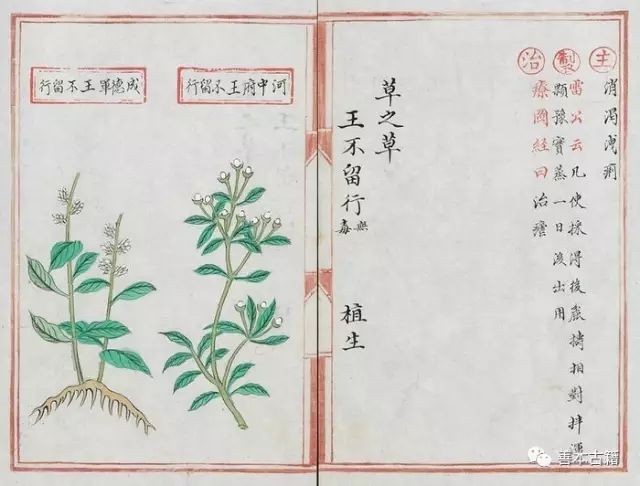 主 消渴洩痢
製 雷公云凡使採得後 相對拌
顆豫實蒸一日後出用
治 療圖經曰治瘡
草之草
王不留行 無毒 植生
河中府王不留行
成德軍王不留行
善本古籍